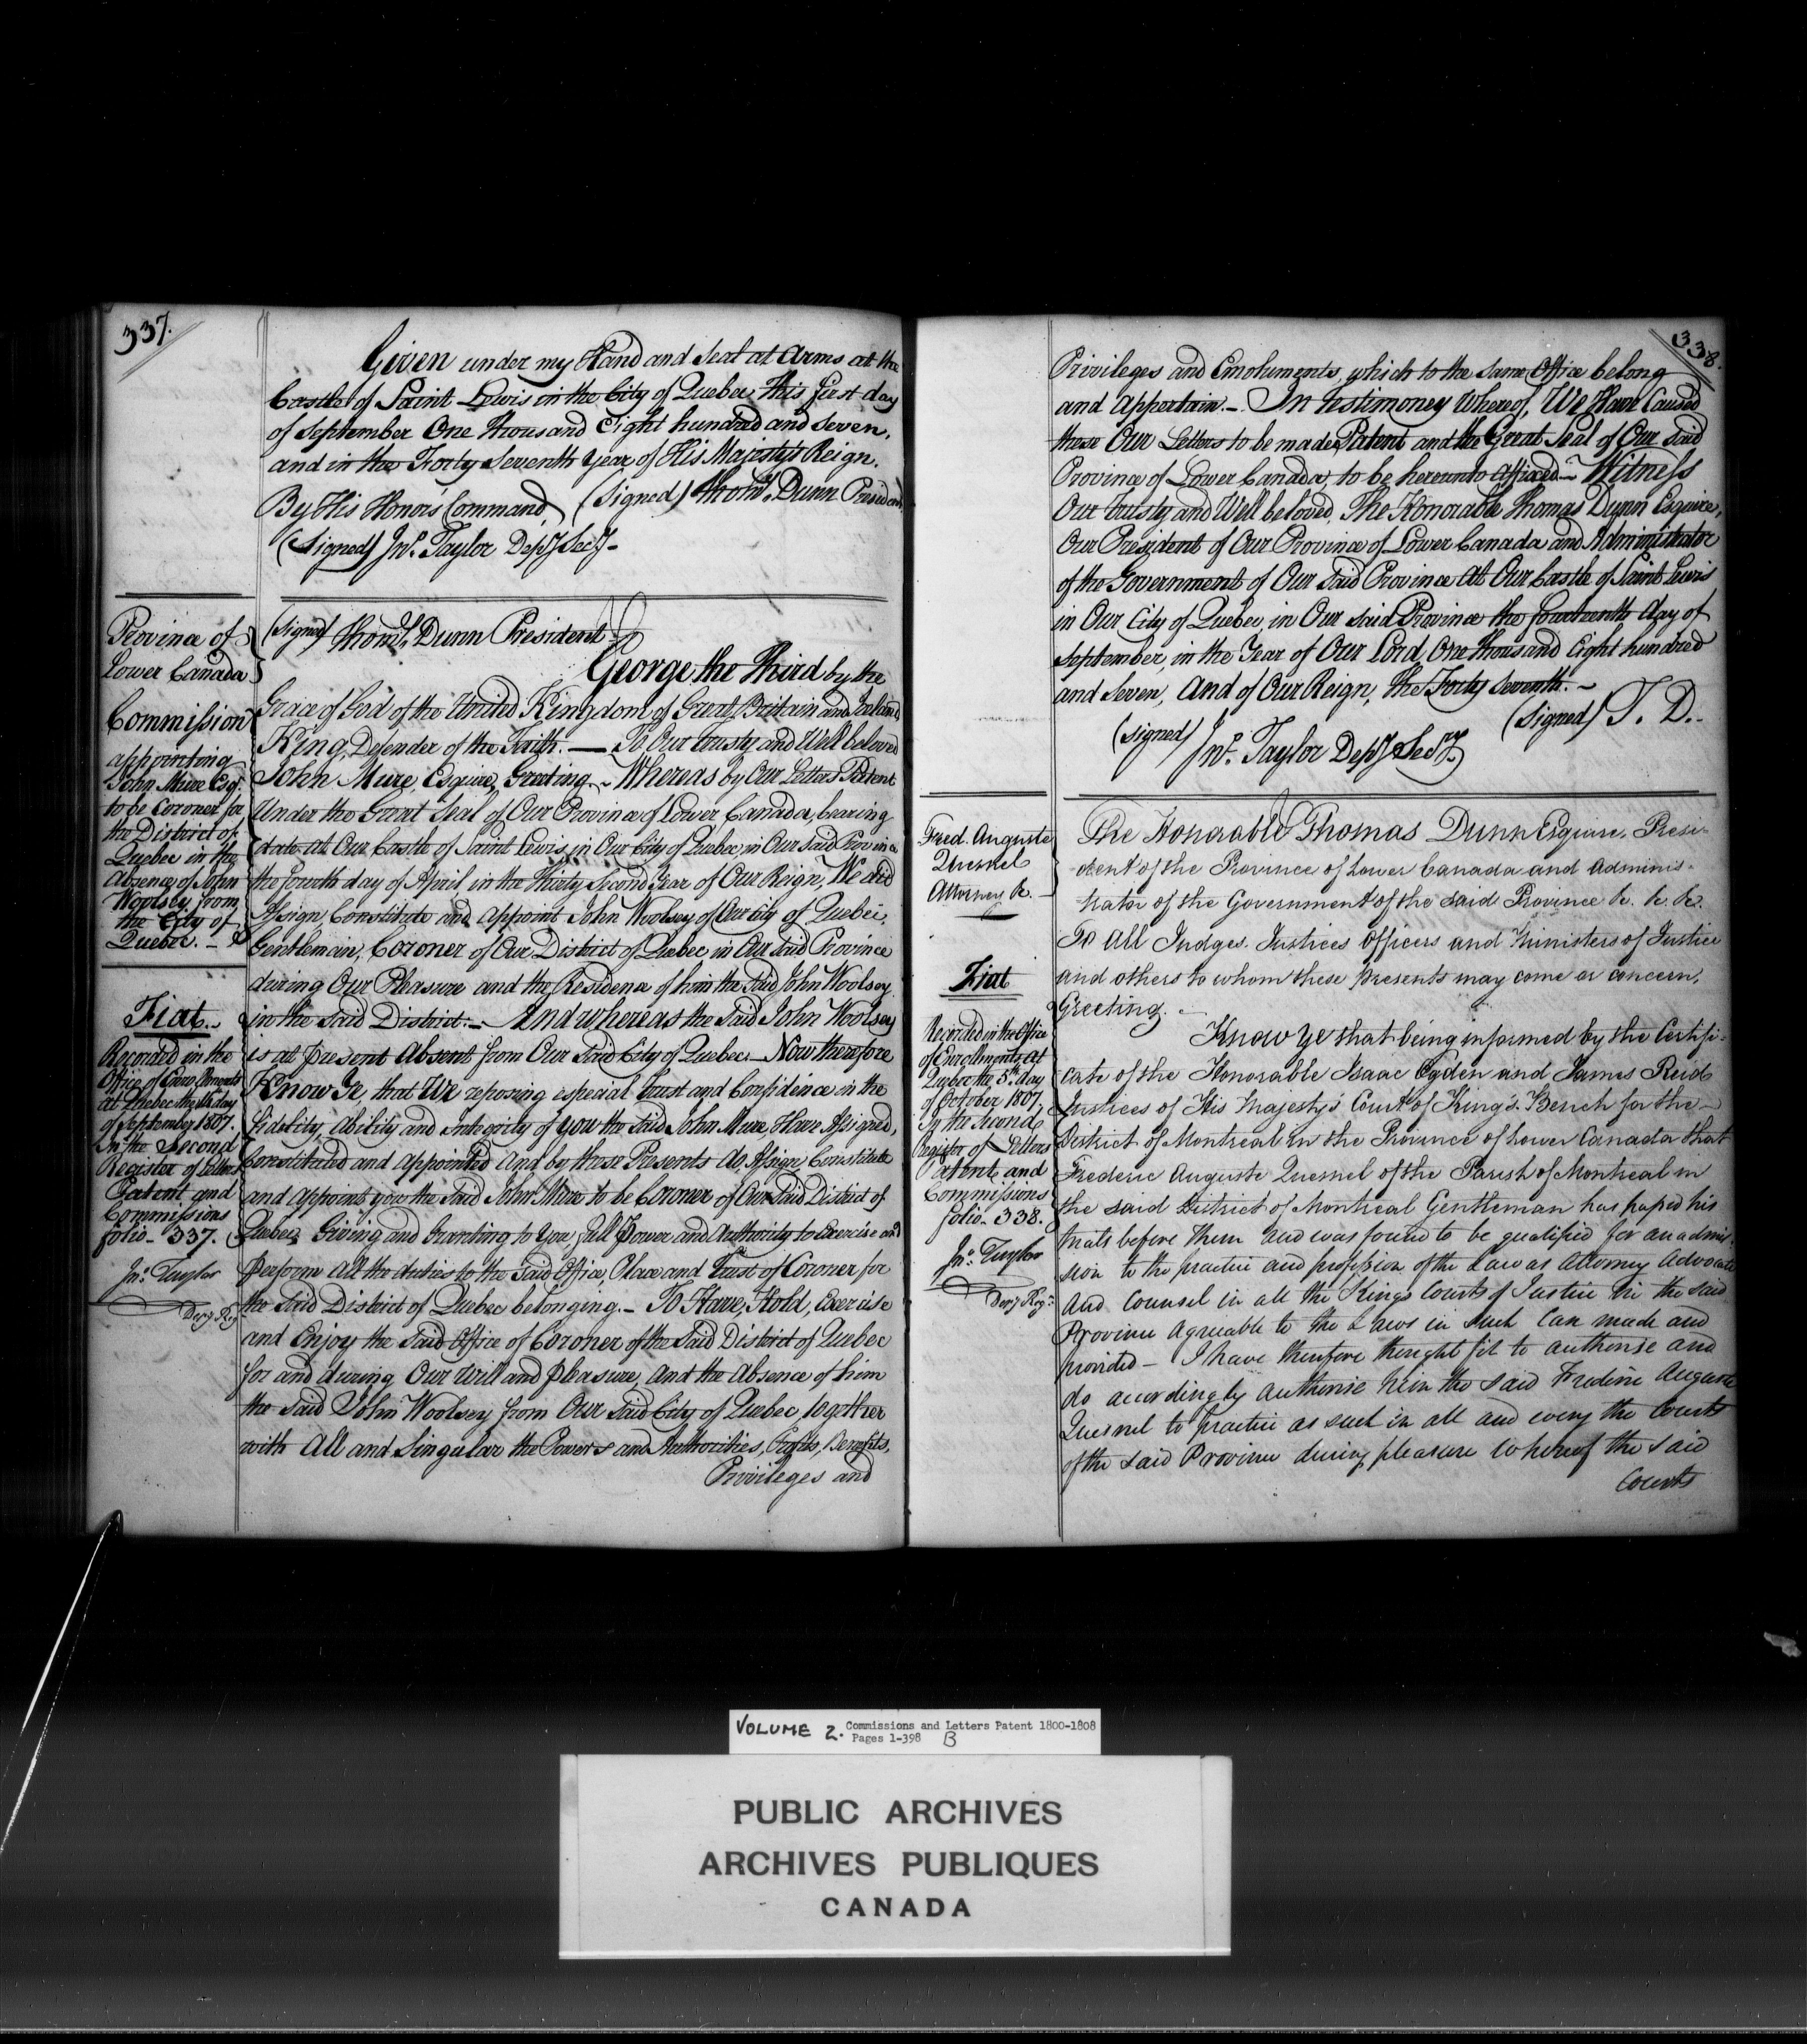 337.
Given under my Hand and Seal at Arms at the
Castle of Saint Lewis in the City of Quebec this first day
of September One Thousand Eight hundred and Seven,
and in the Forty Seventh Year of His Majesty's Reign.
By His Honors Command, (Signed) Thoms. Dunn President
(Signed) Jno. Taylor Depy Secy-
Province of
Lower Canada
Commission
appointing
John Mure Esqr.
to be Coroner for
the District of
Quebec in the
Absence of John
Woolsey from
the City of
Quebec. -
Fiat.
Recorded in the
Office of Enrollments
at Quebec the day
of September 1807.
In the Second
Register of Letters
Patent and
Commissions
folio- 337.
Jno. Taylor
Depy Regr
(Signed) Thoms. Dunn President
George the Third by the
Grace of God of the United Kingdom of Great Britain and Ireland
King, Defender of the Faith. — To Our trusty and Well beloved
John Mure, Esquire, Greeting. - Whereas by Our Letters Patent
Under the Great Seal of Our Province of Lower Canada, bearing
date at Our Castle of Saint Lewis, in Our City of Quebec in Our said Province
the fourth day of April in the Thirty Second Year of Our Reign, We did
Assign, Constitute and appoint John Woolsey of Our City of Quebec,
Gentleman, Coroner of Our District of Quebec in Our said Province
during Our Pleasure and the Residence of him the said John Woolsey
in the said District. - And whereas the said John Woolsey
is at present Absent from Our said City of Quebec - Now therefore
Know Ye, that We reposing especial trust and Confidence in the
fidelity, ability and integrity of you the said John Mure, Have Assigned,
Constituted and appointed And by these Presents do Assign Constitute
and appoint you the said John Mure to be Coroner of Our said District of
Quebec, Giving and Granting to You full Power and Authority to Exercise and
perform all the duties to the said Office, Place and Trust of Coroner for
the said District of Quebec belonging. - To Have, Hold, Exercise
and Enjoy the said Office of Coroner of the said District of Quebec
for and during Our Will and pleasure, and the Absence of him
the said John Woolsey from Our said City of Quebec, together
with All and Singular the Powers and Authorities, Profits, Benefits,
Privileges and
338.
Privileges and Emoluments, which to the same Office belong
and Appertain. - In testimoney Whereof, We Have Caused
these Our Letters to be made Patent and the Great Seal of Our said
Province of Lower Canada, to be hereunto Affixed. - Witness
Our trusty and Well beloved, The Honorable Thomas Dunn Esquire,
Our President of Our Province of Lower Canada and Administrator
of the Government of Our said Province At Our Castle of Saint Lewis
in Our City of Quebec in Our said Province the fourteenth day of
September, in the Year of Our Lord, One thousand Eight hundred
and Seven, And of Our Reign, the Forty Seventh. -
(Signed) T. D. -
(Signed) Jno. Taylor Depy Secy.
Fred. Auguste
Quesnel
Attorney &c. -
Fiat
Recorded in the Office
of Enrollments at
Quebec the 5th. day
of October 1807.
In the second
Register of Letters
Patent and
Commissions
folio- 338.
Jno. Taylor
Depy Regr.
The Honorable Thomas Dunn Esquire, Presi-
dent of the Province of Lower Canada and Adminis-
trator of the Government of the said Province &c. &c. &c.
To All Judges. Justices Officers and Ministers of Justice
and others to whom these presents may come or concern,
Greeting. -
Know Ye that being informed by the Certifi-
cate of the Honorable Isaac Ogden and James Reid
Justices of His Majesty's Court of King's Bench for the -
District of Montreal in the Province of Lower Canada that
Frederic Auguste Quesnel of the Parish of Montreal in
the said District of Montreal Gentleman has passed his
trials before them and was found to be qualified for an admis-
sion to the practice and profession of the Law as Attorney Advocate
and Counsel in all the Kings Courts of Justice in the said
Province agreeable to the Laws in such Case made and
provided - I have therefore thought fit to authorise and
do accordingly authorise him the said Frederic Auguste
Quesnel to practice as such in all and every the Courts
of the said Province during pleasure whereof the said
Courts
VOLUME 2. Commissions and Letters Patent 1800-1808
Pages 1-398 B
PUBLIC ARCHIVES
ARCHIVES PUBLIQUES
CANADA